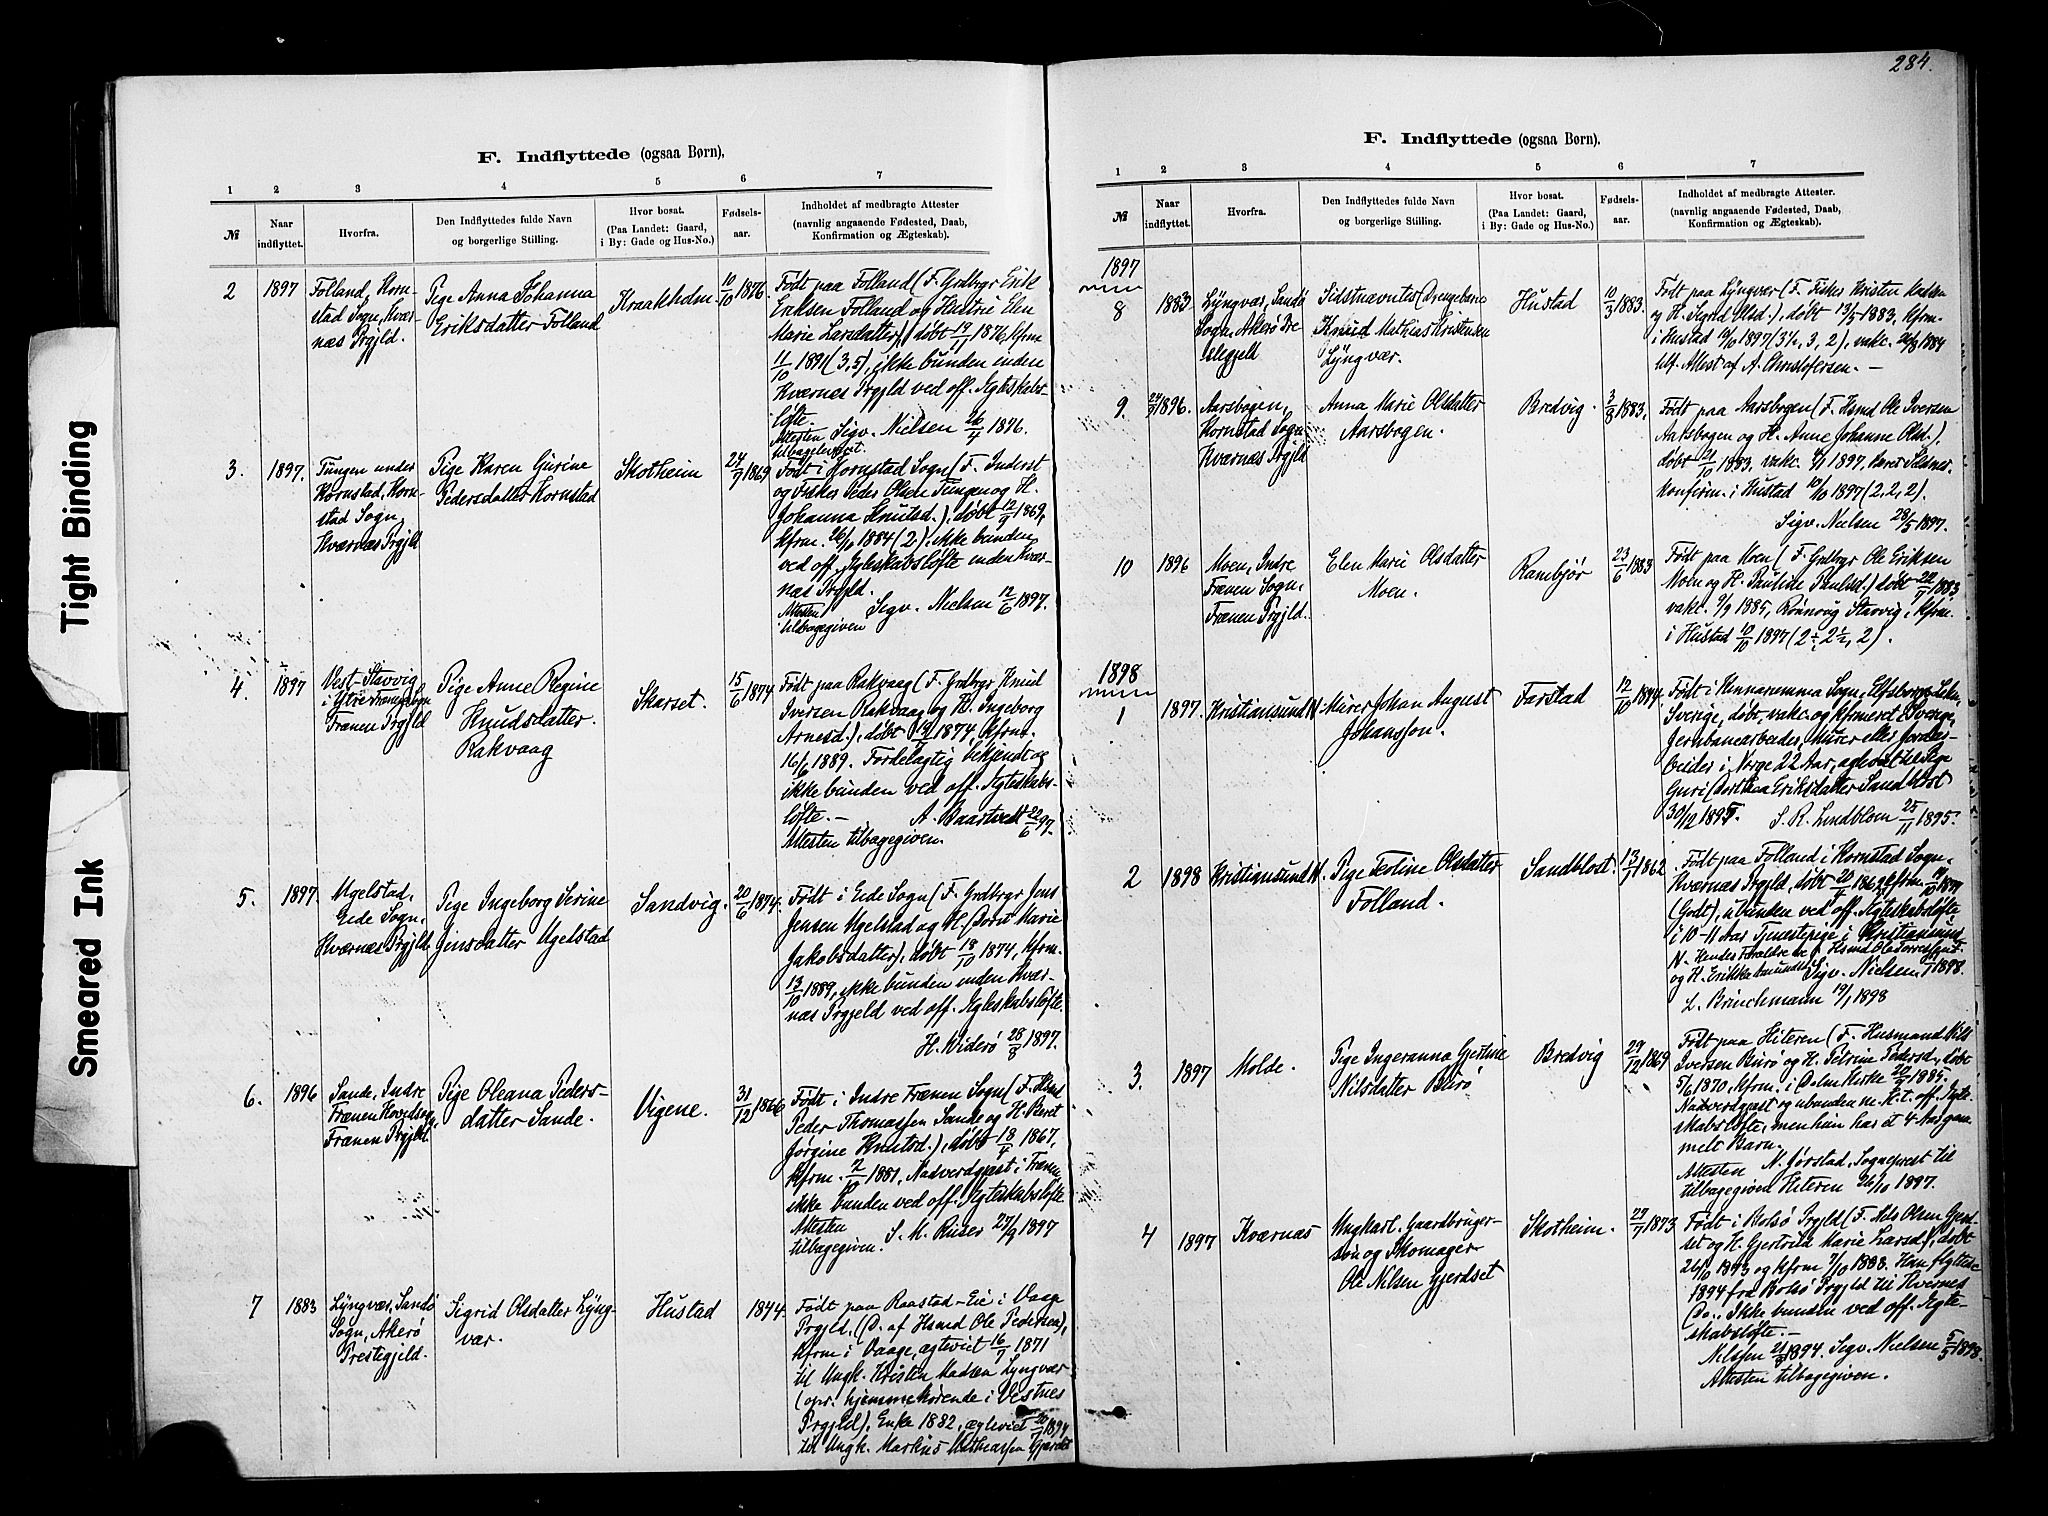 Tight Binding
Smeared Ink
F. Indflyttede (ogsaa Børn),
1 2 3 4 5 6 7
№ Naar indflyttet. Hvorfra. Den Indflyttedes fulde Navn og borgerlige Stilling. Hvor bosat. (Paa Landet: Gaard, i By: Gade og Hus-No.) Fødselsaar. Indholdet af medbragte Attester (navnlig angaaende Fødested, Daab, Konfirmation og Ægteskab).
2 1897 Folland, Korn-
stad Sogn, Kvær-
næs Prgjld.
Pige Anna Johanna
Eriksdatter Folland
Kraakholm
10/10 1876.
Født paa Folland (F. Grdbrgr Erik
Eriksen Folland og Hustrie Elen
Marie Larsdatter), døbt 19/1 1876, kfrm
11/10 1891 (3,5), ikke bunden inden
Kværnæs Prgjld ved off. Ægteskabs-
løfte.
Attesten Sigv. Nielsen 26/4 1896.
tilbageleveret.
3. 1897. Tungen under
Kornstad, Korn-
stad Sogn,
Kværnæs Prgjld
Pige Karen Gurine
Pedersdatter Kornstad
Skotheim
24/7 1869
Født i Kornstad Sogn (F. Inderst
og Fisker Peder Olsen Tungen og H.
Johanna Knutsd.), døbt 12/9 1869,
kfrm. 26/10 1884 (2), ikke bunden
ved off. Ægteskabsløfte inden Kvær-
næs Prgjld.
Attesten Sigv. Nielsen 12/6 1897.
tilbagegiven
4. 1897 Vest-Stavvig
i Ytre Frænen Sogn
Frænen Prgjld
Pige Anne Regine
Knudsdatter
Rakvaag
Skarset.
15/6 1874
Født paa Rakvaag (F. Grdbrgr Knud
Iversen Rakvaag og H. Ingeborg
Arnesd.), døbt 1874, kfrm.
16/6 1889. Fordelagtig bekjendt og
ikke bunden ved off. Ægteskabs-
løfte. — A. Baarstvedt 22/6 97.
Attesten tilbagegiven.
5. 1897. Ugelstad,
Eide Sogn,
Kværnæs Prgjld
Pige Ingeborg Serine
Jensdatter Ugelstad
Sandvig.
20/6 1874.
Født i Eide Sogn (F. Grdbrgr Jens
Jensen Ugelstad og H. Dorte Marie
Jakobsdatter), døbt 18/10 1874, kfrm.
13/10 1889, ikke bunden inden Kvær-
næs Prgjeld ved off. Ægteskabsløfte.
H. Widerø 28/8 1897.
6. 1896 Sande, Indre
Frænen Hovedsogn,
Frænen Prgjld.
Pige Oleana Peders-
datter Sande.
Vigene.
31/12 1866
Født i Indre Frænen Sogn (F. Hsmd
Peder Thomassen Sande og H. Beret
Jørgine Knutsd.), døbt 18/4 1867,
kfrm. 2/10 1881, Nadverdgjæst i Frænen
ikke bunden ved off. Ægteskabsløfte
Attesten S. M. Riiser 27/9 1897
tilbagegiven.
7 1883 Lyngvær, Sandø
Sogn, Akerø
Prestegjeld.
Sigrid Olsdatter Lyng-
vær.
Hustad
1844
Født paa Raastad-Eie i Vaage
Prgjld, (D. af Hsmd Ole Pedersen),
kfrm i Vaage, ægteviet 16/7 1871
til Ungk. Kristen Madsen Lyngvær
(opr. hjemmehørende i Vestnes
Prgjld), Enke 1882, ægteviet 1894
til Ungk. Markus Gjerdet
284.
F. Indflyttede (ogsaa Børn).
1 2 3 4 5 6 7
№ Naar indflyttet. Hvorfra. Den Indflyttedes fulde Navn og borgerlige Stilling. Hvor bosat. (Paa Landet: Gaard, i By: Gade og Hus-No.) Fødselsaar. Indholdet af medbragte Attester. (navnlig angaaende Fødested, Daab, Konfirmation og Ægteskab).
1897
8 1883 Lyngvær, Sandø
Sogn, Akerø Pre-
stegjeld
Sidstnævntes (Drengebarn)
Knud Mathias Kristensen
Lyngvær.
Hustad
10/3 1883.
Født paa Lyngvær (F. Fisker Kristen Madsen
og H. Sigrid Olsd.), døbt 13/5 1883, kfrm-
i Hustad 10/10 1897 (3½, 3, 2), vakc. 26/8 1884
tlf. Attest af A. Christofersen. —
9. 24/9 1896. Aarsbogen,
Kornstad Sogn
Kværnæs Prgjld
Anna Marie Olsdatter
Aarsbogen.
Bredvig.
3/8 1883,
Født paa Aarsbogen (F. Hsmd Ole Iversen
Aarsbogen og H. Anne Johanne Olsd.),
døbt 1883, vakc. 1897
konfirm. i Hustad 10/10 1897 (2,2,2).
Sigv. Nielsen 28/5 1897.
10 1896 Moen, Indre
Frænen Sogn,
Frænen Prgjld.
Elen Marie Olsdatter
Moen.
Rambjør
23/6 1883
Født paa Moen (F. Grdbrgr Ole Eriksen
Moen og H. Pauline Paulsd.) døbt 22/7 1883,
vakc. 9/9 1885, Rønnoug Stavvig, kfrm.
i Hustad 10/10 1897 (2½, 2½, 2).
1898
1 1897. Kristiansund N
Murer Johan August
Johansson.
Farstad
12/10 1847.
Født i Kinnaremma Sogn, Elfsborgs Lehn,
Sverige, døbt, vakc. og kfrmeret i Sverige,
Jernbanearbeider, Murer eller Jordar-
beider i Norge 22 Aar, agteviet til Pige
Guri Dorthea Eriksdatter Sandblost
30/12 1895. S. R. Lindblom 25/11 1895.
2 1898 Kristiansund N.
Pige Teoline Olsdatter
Folland.
Sandblost
13/7 1862
Født paa Folland i Kornstad Sogn,
Kværnæs Prgjld, døbt 20/7 1862, kfrm.
(Godt), ubunden ved off. Ægteskabsløfte,
i 10-11 Aar Tjenestepige i Kristiansund
N. Hendes Forældre er F. Hsmd Ola
og H. Erikka Sigv. Nielsen 1898.
L. Brinchmann 19/1 1898
3. 1897 Molde.
Pige Ingeranna Gjertine
Nilsdatter Burø
Bredvig
29/12 1869
Født paa Hiteren (F. Husmand Nils
Iversen Burø og H. Petrine Pedersd., døbt
5/6 1870, kfrm. i Dolm Kirke 20/9 1885,
Nadverdgjæst og ubunden m. H. t. off. Ægte-
skabsløfte, men hun har et 4 Aar gam-
melt Barn.
Attesten N. Jørstad, Sogneprest til
tilbagegiven Hiteren 26/10 1897.
4 1897 Kværnæs
Ungkarl. Gaardbruger-
søn og Skomager
Ole Nilsen Gjerdset
Skotheim.
29/7 1873
Født i Bolsø Prgjld (F. Nils Olsen Gjerd-
set og H. Gjertrud Marie Larsd), døbt
26/10 1873 og kfrm 7/10 1888. Han flyttede
1894 fra Bolsø Prgjld til Kvernes
Do., Ikke bunden ved off. Ægte-
skabsløfte. —
Nilssen 21/8 1894. Sigv. Nielsen 5/5 1898.
Attesten tilbagegiven.